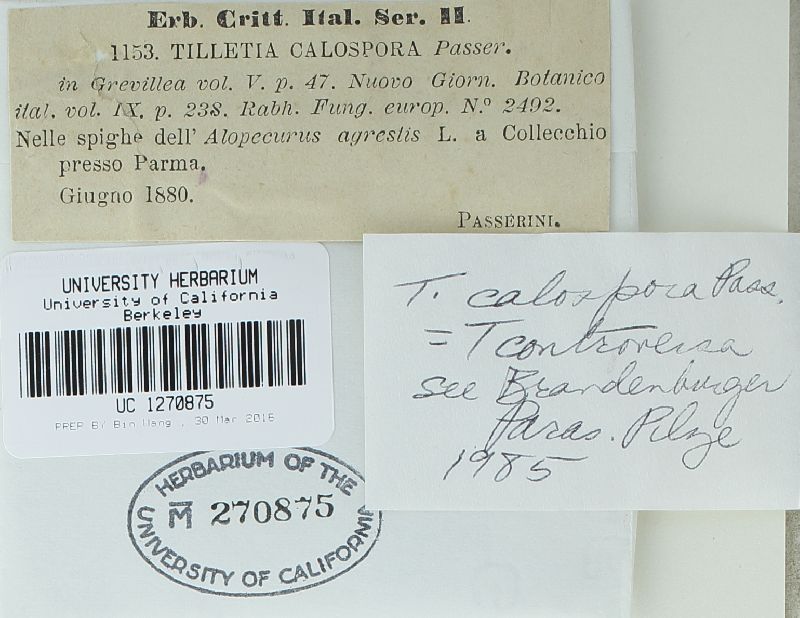 Erb. Critt. Ital. Ser. II.
1153. TILLETIA CALOSPORA Passer.
in Grevillea vol. V. p. 47. Nuovo Giorn. Botanico
ital. vol. IX. p. 238. Rabh. Fung. europ. N.º 2492.
Nelle spighe dell' Alopecurus agrestis L. a Collecchio
presso Parma.
Giugno 1880.
PASSERINI.
T. calospora Pass.
= T controversa
see Brandenburger
Paras. Pilze
1985
UNIVERSITY HERBARIUM
University of California
Berkeley
UC 1270875
PREP BY Bin Wang , 30 Mar 2016
HERBARIUM OF THE
M 270875
UNIVERSITY OF CALIFORNIA